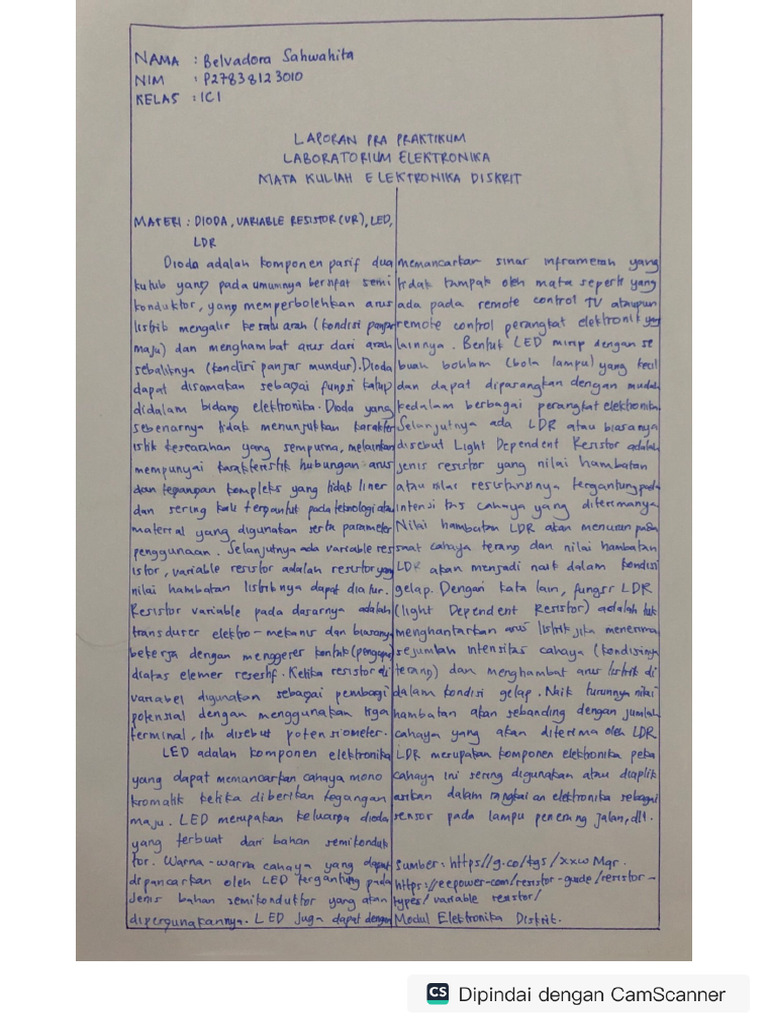 NAMA : Belvadora Sahwahita
NIM : P27838123010
KELAS : 1C1
LAPORAN PRA PRAKTIKUM
LABORATORIUM ELEKTRONIKA
MATA KULIAH ELEKTRONIKA DISKRIT
MATERI : DIODA, VARIABLE RESISTOR (VR), LED,
LDR
Dioda adalah komponen pasif dua
kutub yang pada umumnya bersifat semi
konduktor, yang memperbolehkan arus
listrik mengalir kesatu arah (kondisi panjar
maju) dan menghambat arus dari arah
sebaliknya (kondisi panjar mundur). Dioda
dapat disamakan sebagai fungsi katup
didalam bidang elektronika. Dioda yang
sebenarnya tidak menunjukkan karakter
istik kesearahan yang sempurna, melainkan
mempunyai karakteristik hubungan arus
dan tegangan kompleks yang tidak liner
dan sering kali tergantut pada teknologi atau
material yang digunakan serta parameter
penggunaan. Selanjutnya ada variable res
istor, variable resistor adalah resistor yang
nilai hambatan listriknya dapat diatur.
Resistor variable pada dasarnya adalah
transduser elektro-mekanis dan biasanya
bekerja dengan menggeser kontak (pengapus)
diatas elemer resestif. Ketika resistor di
variabel digunakan sebagai pembagi
potensial dengan menggunakan tiga
terminal, itu disebut potensiometer.
LED adalah komponen elektronika
yang dapat memancarkan cahaya mono
kromatik ketika diberikan tegangan
maju. LED merupakan keluarga dioda
yang terbuat dari bahan semikonduk
tor. Warna-warna cahaya yang dapat
dipancarkan oleh LED tergantung pada
jenis bahan semikonduktor yang akan
dipergunakannya. LED juga dapat dengan
memancarkan sinar inframerah yang
tidak tampak oleh mata seperti yang
ada pada remote control TV ataupun
remote control perangkat elektronik yang
lainnya. Bentuk LED mirip dengan se
buah bohlam (bola lampu) yang kecil
dan dapat dipasangkan dengan mudah
kedalam berbagai perangkat elektronika.
Selanjutnya ada LDR atau biasanya
disebut Light Dependent Resistor adalah
jenis resistor yang nilai hambatan
atau nilai resistansinya tergantung pada
intensitas cahaya yang diterimanya
Nilai hambatan LDR akan menurun pada
saat cahaya terang dan nilai hambatan
LDR akan menjadi naik dalam kondisi
gelap. Dengan kata lain, fungsi LDR
(light Dependent Resistor) adalah utk
menghantarkan arus listrik jika menerima
sejumlah intensitas cahaya (kondisinya
terang) dan menghambat arus listrik di
dalam kondisi gelap. Naik turunnya nilai
hambatan akan sebanding dengan jumlah
cahaya yang akan diterima oleh LDR
LDR merupakan komponen elektronika peka
cahaya ini sering digunakan atau diaplik
asikan dalam rangkaian elektronika sebagai
sensor pada lampu penerang jalan, dll.
Sumber : https//g.co/kgs/XxwMqr.
https//eepower-com/resistor-guide/resistor-
types/variable resistor/
Modul Elektronika Diskrit.
CS Dipindai dengan CamScanner